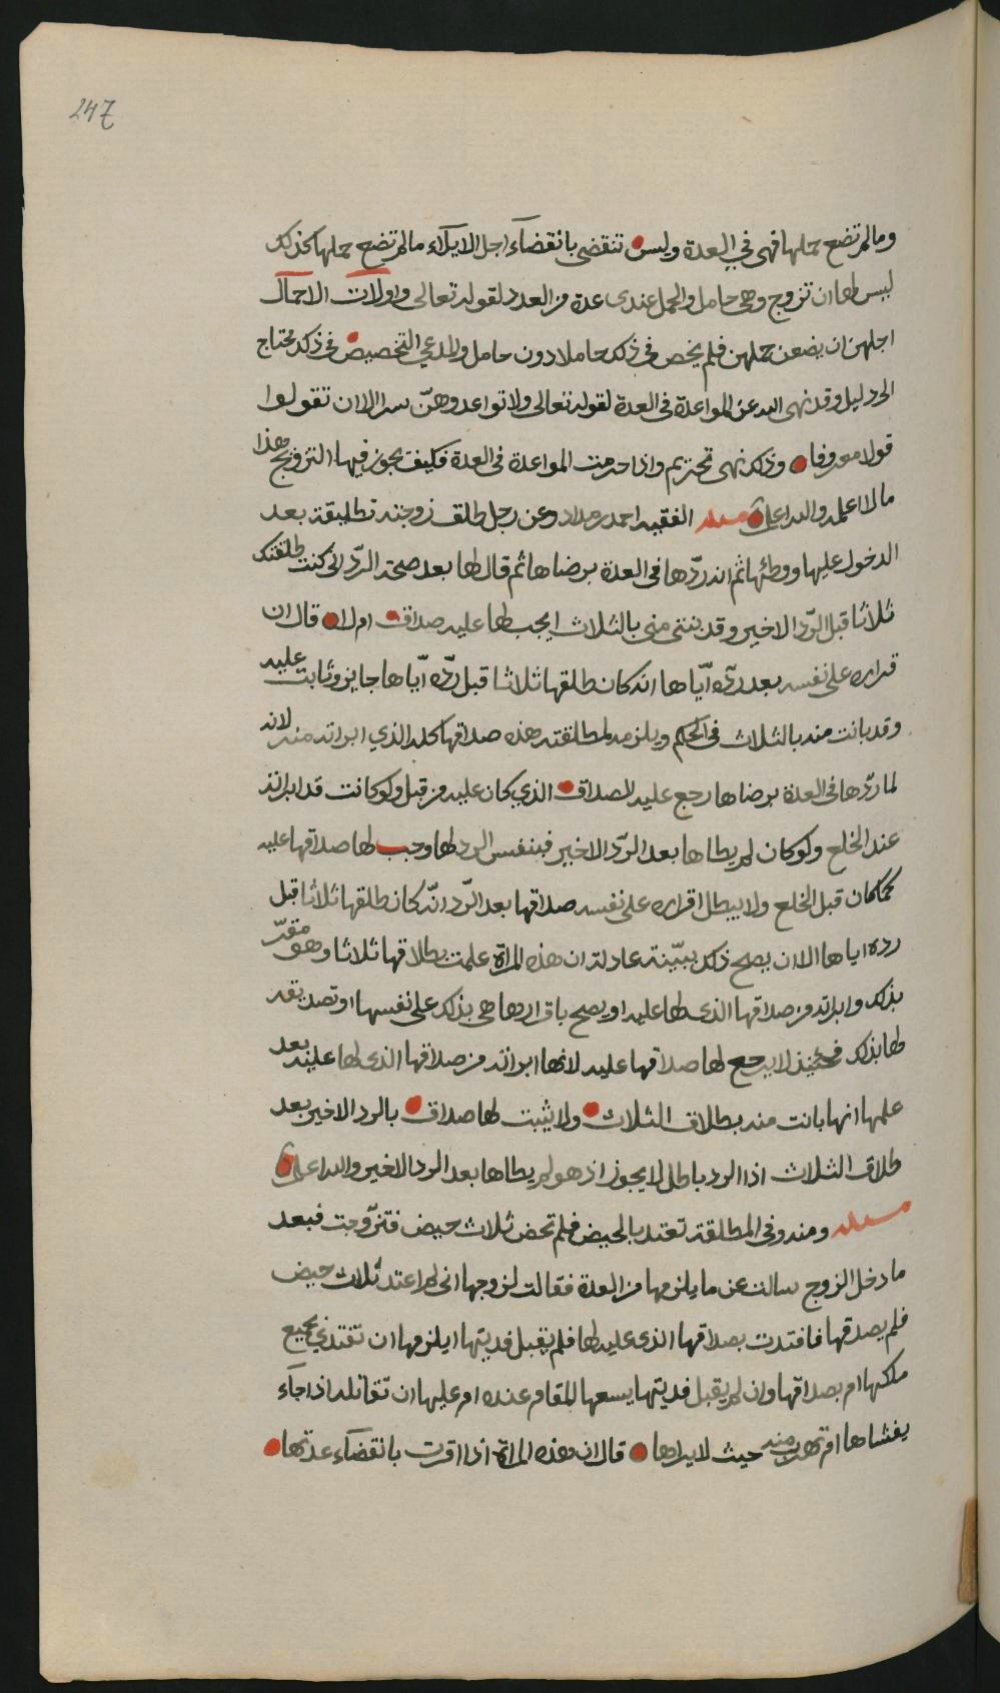 247
ومالم تضع حملها فهي في العدة وليس تنقضي بانقضآء اجل الايلآء مالم تضع حملها كذلك
ليس لها ان تزوج وهي حامل والحمل عندى عدة من العدد لقوله تعالى واولات الاحمال
اجلهن ان يضعن حملهن فلم يخص فى ذلك حاملا دون حامل والمدعي التخصيص فى ذلك محتاج
الى دليل وقد نهى الله عن المواعدة فى العدة لقوله تعالى ولا تواعدوهنّ سرا الا ان تقولوا
قولا معروفا وذلك نهى تحتريم واذا حرمت المواعدة فى العدة فكيف يجوز فيها التزويج هذا
مالا اعلمه والله اعلم مسئلة الفقيه احمد بن مداد وعن رجل طلق زوجته تطليقة بعد
الدخول عليها ووطئها ثم انه ردّها فى العدة برضاها ثم قال لها بعد صحة الردّ انى كنت طلقتك
ثلاثا قبل الردّ الاخير وقد بنتى منى بالثلاث ايجب لها عليه صداق ام لا قال ان
قراره على نفسه بعد ردّه ايّاها انه كان طلقها ثلاثا قبل ردّه ايّاها جايز وثابت عليه
وقد بانت منه بالثلاث فى الحكم ويلزمه لمطلقته هذه صداقها كله الذي ابراته منه لانه
لما ردّها فى العدة برضاها رجع عليه الصداق الذي كان عليه من قبل ولو كانت قد ابراته
عند الخلع ولو كان لم يطاها بعد الردّ الاخير فبنفس الرد لها وجب لها صداقها عليه
كما كان قبل الخلع ولا يبطل اقراره على نفسه صداقها بعد الرّد انّه كان طلقها ثلاثا قبل
رده اياها الا ان يصح ذلك ببيّنة عادلة ان هذه المراة علمت بطلاقها ثلاثا وهو مقرّ
بذلك وابراته من صداقها الذى لها عليه او يصح باقرارها هي بذلك على نفسها او تصديقه
لها بذلك فحينئذ لا يرجع لها صداقها عليه لانها ابراته من صداقها الذى لها عليه بعد
علمها انها بانت منه بطلاق الثلاث ولا يثبت لها صداق بالرد الاخير بعد
طلاق الثلاث اذا الرد باطل لا يجوز اذ هو لم يطاها بعد الرد الاخير والله اعلم
مسئلة ومنه وفى المطلقة تعتد بالحيض فلم تحض ثلاث حيض فتزوّجت فبعد
ما دخل الزوج سالت عن ما يلزمها من العدة فقالت لزوجها انى لم اعتد ثلاث حيض
فلم يصدقها فافتدت بصداقها الذى عليه لها فلم يقبل فديتها ايلزمها ان تفتدي بجميع
ملكها ام بصداقها وان لم يقبل فديتها يسعها المقام عنده ام عليها ان تقاتله اذا جآء
يغشاها ام تهرب منه حيث لا يراها قال ان هذه المراة اذا اقرت بانقضآء عدتها